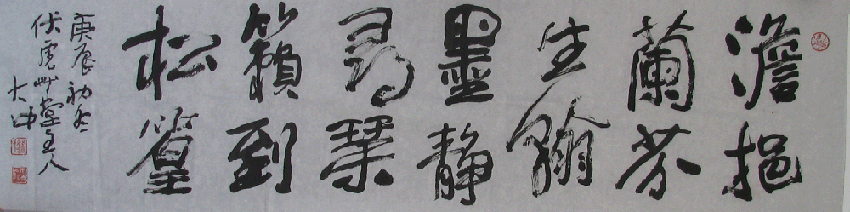 澹挹
蘭芬
生翰
墨静
尋琹
籟到
松篁
庚辰初冬
伏虎艸堂主人
大中